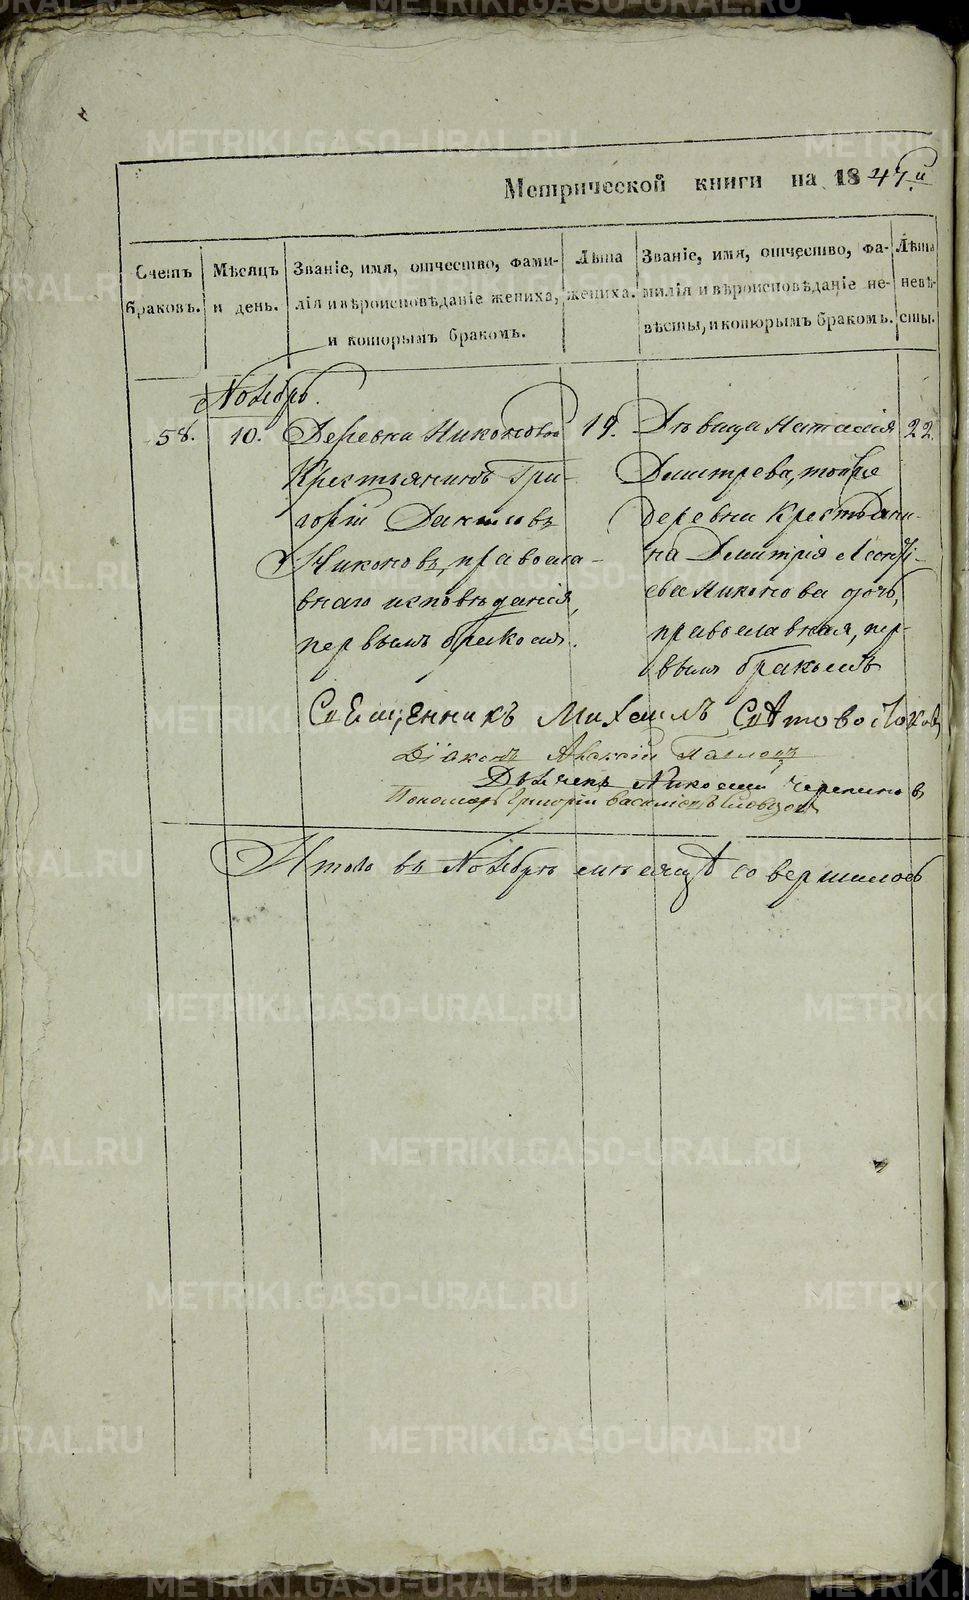 Метрической книги на 1847й
Счетъ браковъ.
Мѣсяцъ и день.
Званіе, имя, отчество, фамилія и вѣроисповѣданіе жениха, и которымъ бракомъ.
Лѣта жениха.
Званіе, имя, отчество, фамилія и вѣроисповѣданіе невѣсты, и которымъ бракомъ.
Лѣта невѣсты.
Ноябрь.
58.
10.
Деревни Никоновой
Крестьянинъ Гри-
горій
Никоновъ, правосла-
внаго исповѣданія,
первымъ бракомъ.
19.
Дѣвица Наталія
Димитрева, тойже
деревни Крестьяни-
на Димитрія
Никонова дочь,
православная, пер-
вымъ бракомъ
22.
Священникъ Михаилъ
Діаконъ
Дьячекъ Николай
Пономарь Григорій
Итого въ Ноябрѣ мѣсяцѣ совершилось
METRIKI.GASO-URAL.RU